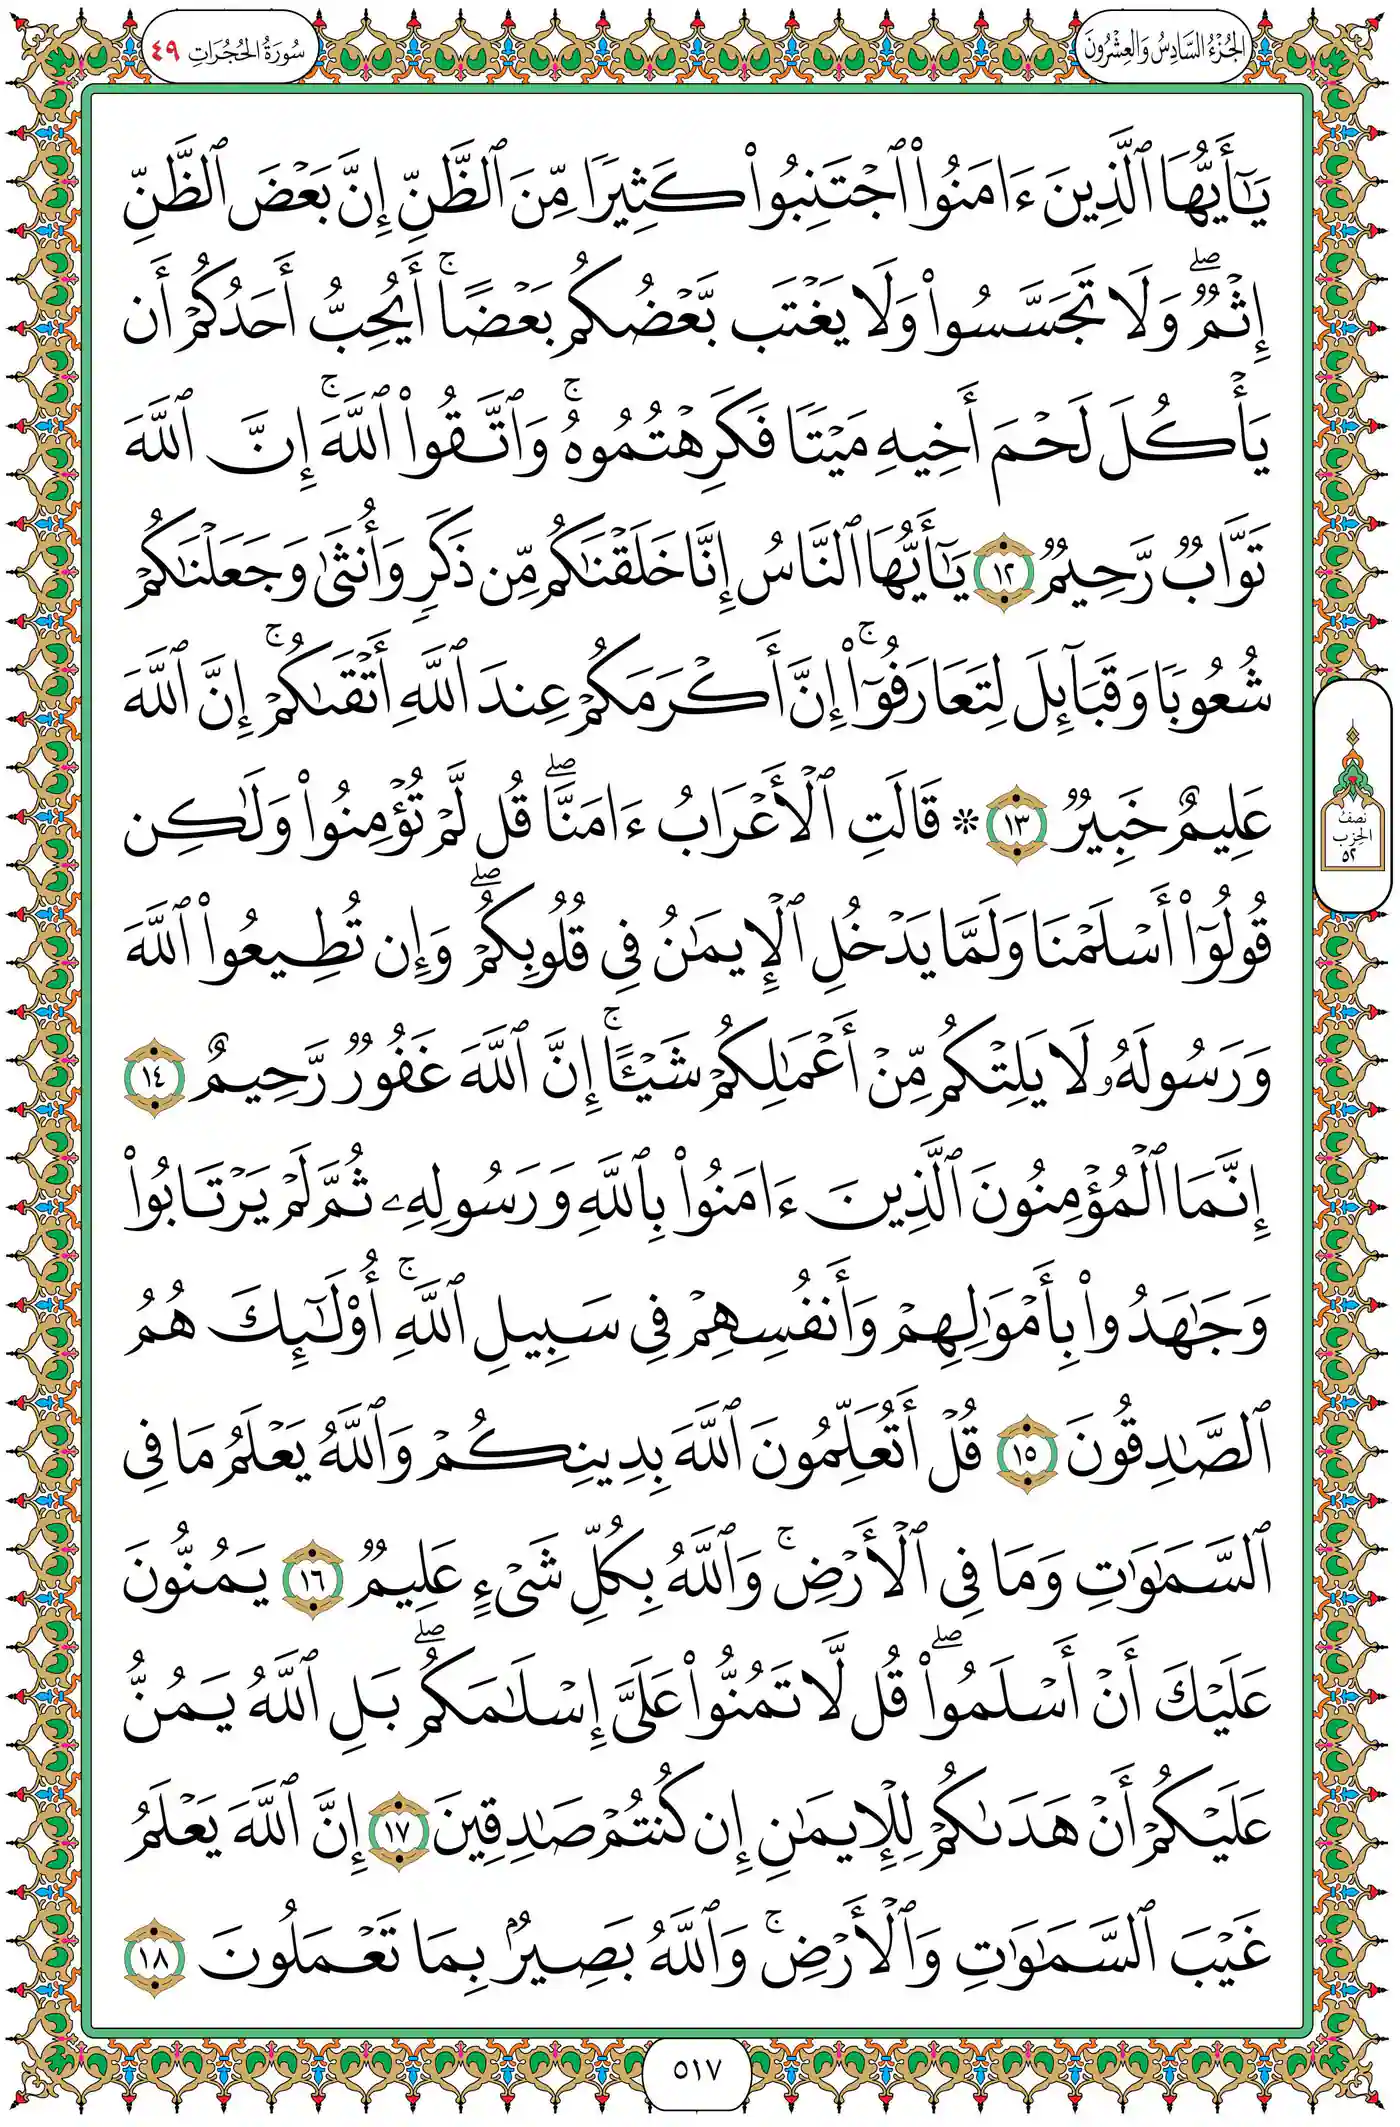 الجُزْءُ السَّادِسُ وَالعِشْرُونَ
سُورَةُ الحُجُرَاتِ ٤٩
يَـٰٓأَيُّهَا ٱلَّذِينَ ءَامَنُوا۟ ٱجْتَنِبُوا۟ كَثِيرًا مِّنَ ٱلظَّنِّ إِنَّ بَعْضَ ٱلظَّنِّ
إِثْمٌ ۖ وَلَا تَجَسَّسُوا۟ وَلَا يَغْتَب بَّعْضُكُم بَعْضًا ۚ أَيُحِبُّ أَحَدُكُمْ أَن
يَأْكُلَ لَحْمَ أَخِيهِ مَيْتًا فَكَرِهْتُمُوهُ ۚ وَٱتَّقُوا۟ ٱللَّهَ ۚ إِنَّ ٱللَّهَ
تَوَّابٌ رَّحِيمٌ ١٢ يَـٰٓأَيُّهَا ٱلنَّاسُ إِنَّا خَلَقْنَـٰكُم مِّن ذَكَرٍ وَأُنثَىٰ وَجَعَلْنَـٰكُمْ
شُعُوبًا وَقَبَآئِلَ لِتَعَارَفُوٓا۟ ۚ إِنَّ أَكْرَمَكُمْ عِندَ ٱللَّهِ أَتْقَىٰكُمْ ۚ إِنَّ ٱللَّهَ
عَلِيمٌ خَبِيرٌ ١٣ * قَالَتِ ٱلْأَعْرَابُ ءَامَنَّا ۖ قُل لَّمْ تُؤْمِنُوا۟ وَلَـٰكِن
قُولُوٓا۟ أَسْلَمْنَا وَلَمَّا يَدْخُلِ ٱلْإِيمَـٰنُ فِى قُلُوبِكُمْ ۖ وَإِن تُطِيعُوا۟ ٱللَّهَ
وَرَسُولَهُۥ لَا يَلِتْكُم مِّنْ أَعْمَـٰلِكُمْ شَيْـًٔا ۚ إِنَّ ٱللَّهَ غَفُورٌ رَّحِيمٌ ١٤
إِنَّمَا ٱلْمُؤْمِنُونَ ٱلَّذِينَ ءَامَنُوا۟ بِٱللَّهِ وَرَسُولِهِۦ ثُمَّ لَمْ يَرْتَابُوا۟
وَجَـٰهَدُوا۟ بِأَمْوَٰلِهِمْ وَأَنفُسِهِمْ فِى سَبِيلِ ٱللَّهِ ۚ أُو۟لَـٰٓئِكَ هُمُ
ٱلصَّـٰدِقُونَ ١٥ قُلْ أَتُعَلِّمُونَ ٱللَّهَ بِدِينِكُمْ وَٱللَّهُ يَعْلَمُ مَا فِى
ٱلسَّمَـٰوَٰتِ وَمَا فِى ٱلْأَرْضِ ۚ وَٱللَّهُ بِكُلِّ شَىْءٍ عَلِيمٌ ١٦ يَمُنُّونَ
عَلَيْكَ أَنْ أَسْلَمُوا۟ ۖ قُل لَّا تَمُنُّوا۟ عَلَىَّ إِسْلَـٰمَكُم ۖ بَلِ ٱللَّهُ يَمُنُّ
عَلَيْكُمْ أَنْ هَدَىٰكُمْ لِلْإِيمَـٰنِ إِن كُنتُمْ صَـٰدِقِينَ ١٧ إِنَّ ٱللَّهَ يَعْلَمُ
غَيْبَ ٱلسَّمَـٰوَٰتِ وَٱلْأَرْضِ ۚ وَٱللَّهُ بَصِيرٌۢ بِمَا تَعْمَلُونَ ١٨
نصْفُ
الحِزْب
٥٢
٥١٧